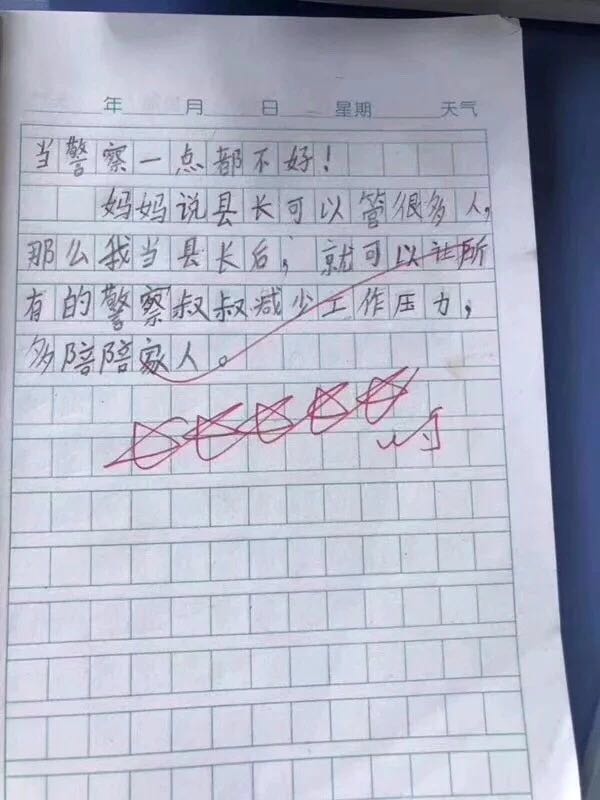 年 月 日 星期 天气
当警察一点都不好！
妈妈说县长可以管很多人，
那么我当县长后，就可以让所
有的警察叔叔减少工作压力，
多陪陪家人。